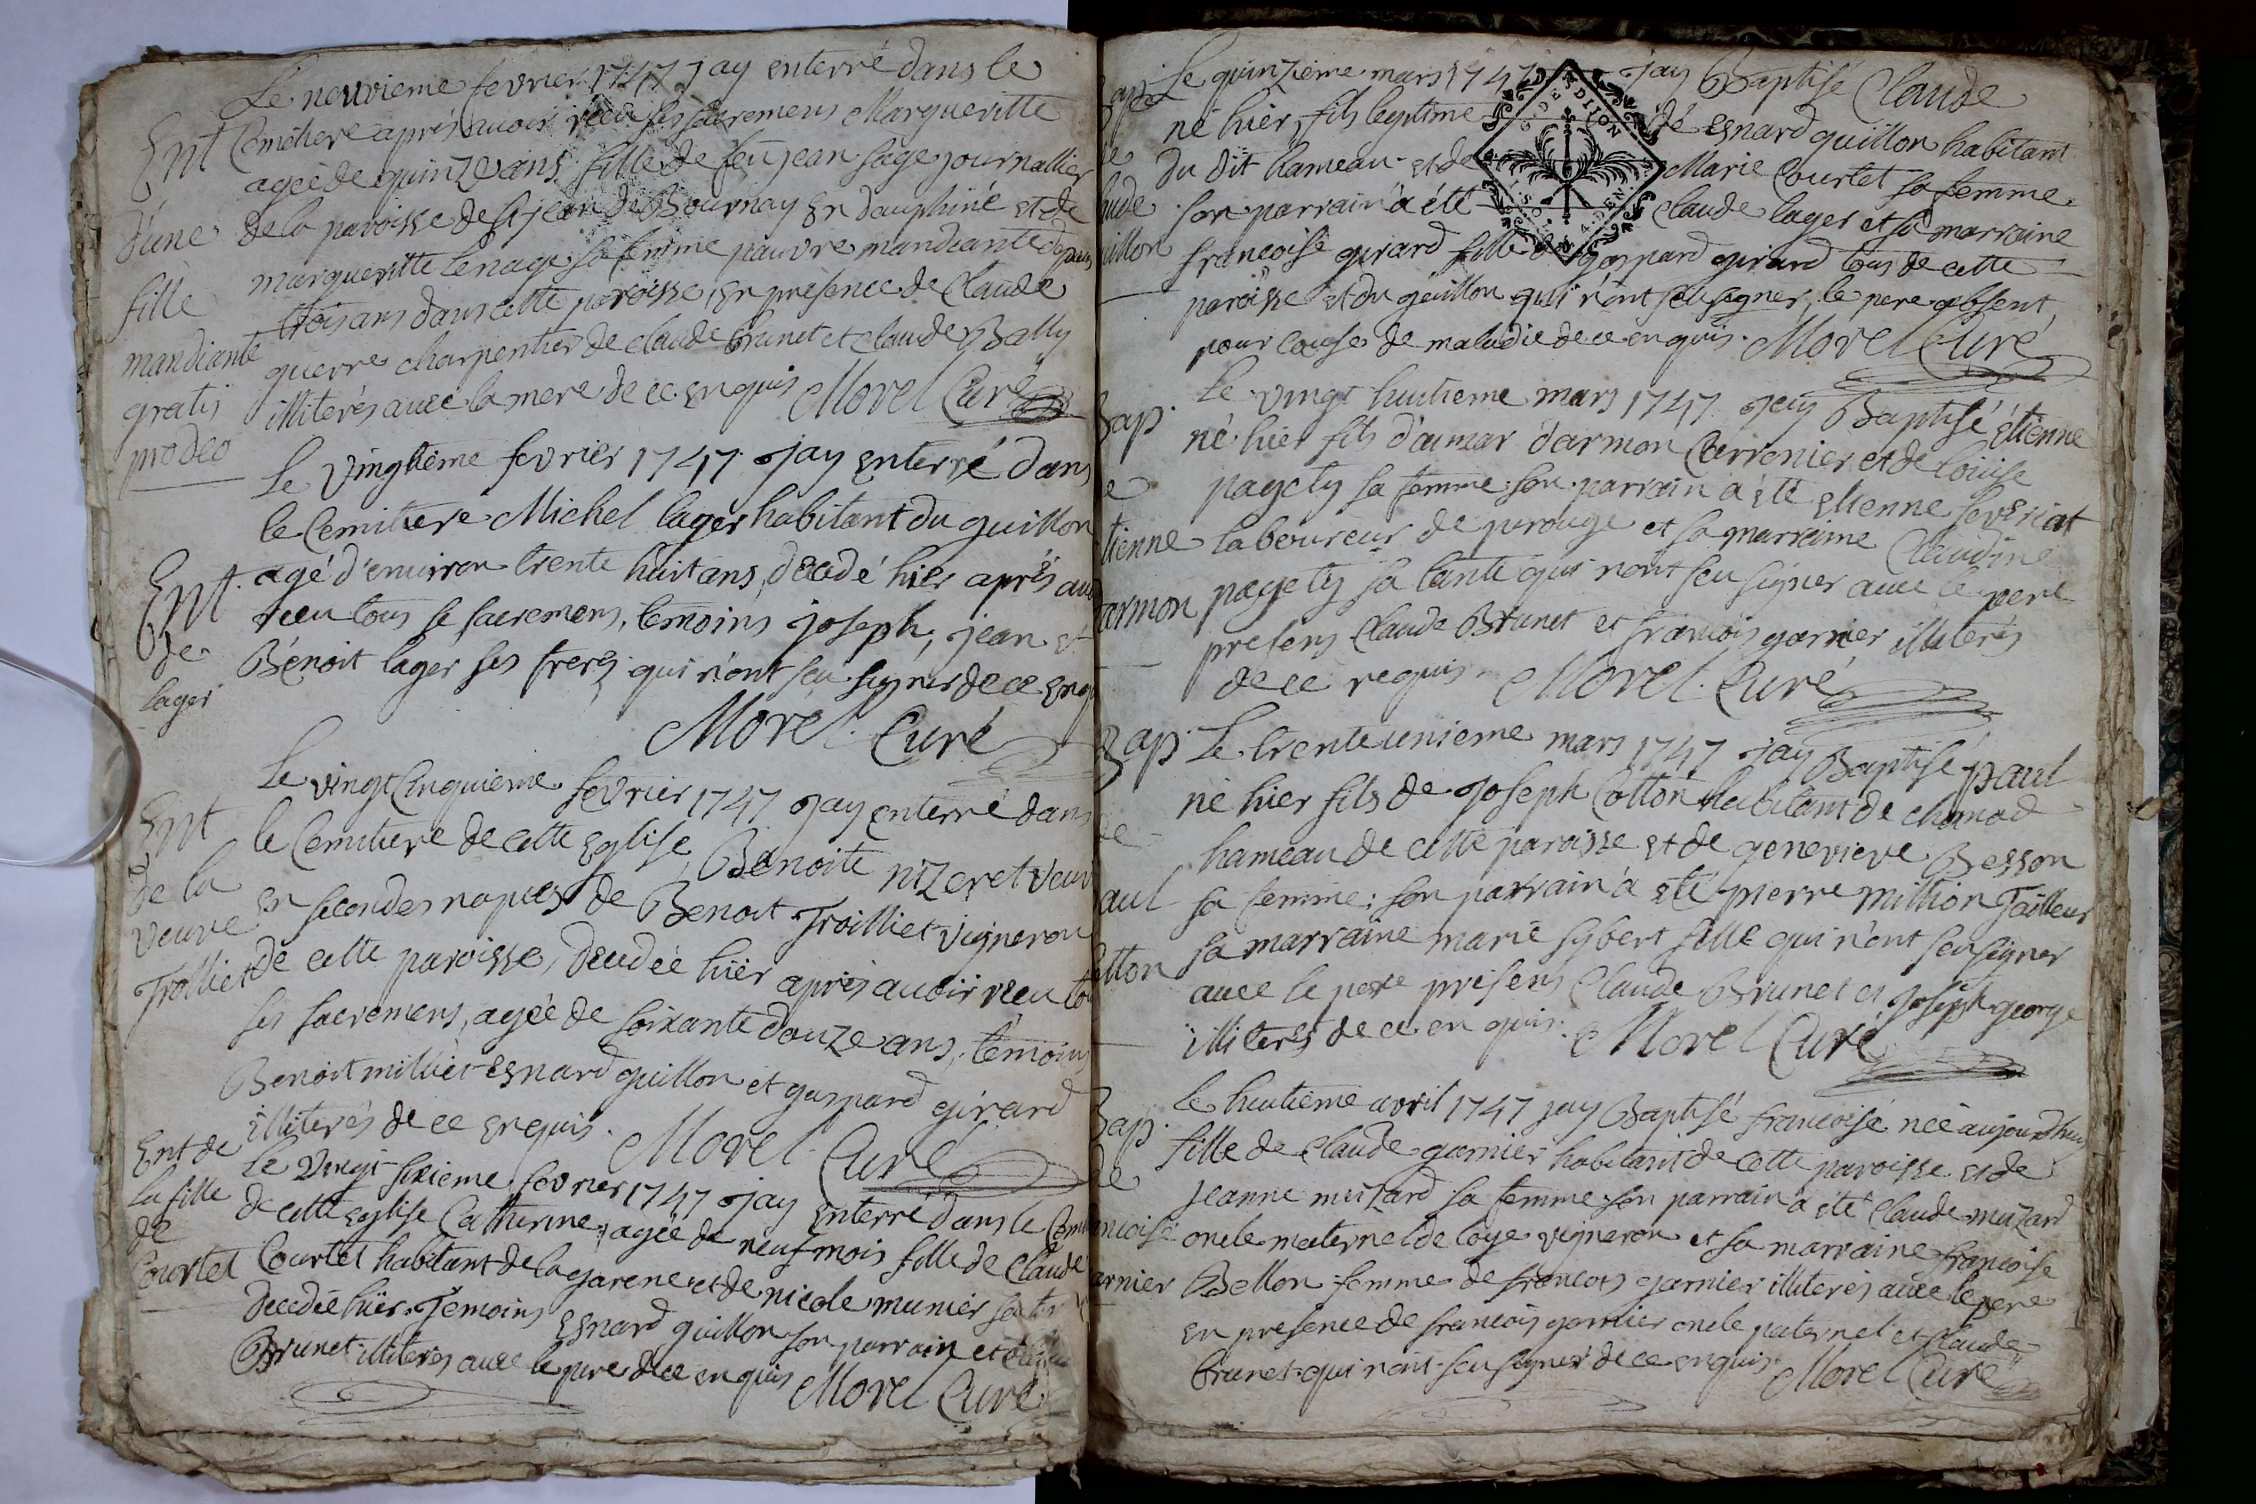 Le neuvieme fevrier 1747 jay enterré dans le
Cemetiere aprés avoir receu ses sacremens Margueritte
agée de quinze ans fille de feu jean sage journallier
de la paroisse de st jean de Bournay en dauphiné et de
margueritte lenage sa femme pauvre mandiante depuis
trois ans dans cette paroisse, en presence de Claude
guerre charpentier de claude brunet et claude Bally
illiterés avec la mere de ce enquis Morel Curé
Ent
d'une
fille
mandiante
gratis
pro deo
Le vingtieme fevrier 1747 jay enterré dans
le Cemitiere Michel lager habitant du guillon
agé d'environ trente huit ans, decedé hier aprés avo
receu tous se sacremens, temoins joseph, jean et
Bénoit lager ses freres qui n'ont seu signer de ce enq
Morel Curé
Ent.
de
lager
Le vingt Cinquieme fevrier 1747 jay enterré dans
le Cemitiere de cette Eglise, Benoite nizeret veuv
en secondes nopces de Benoit Trolliet vigneron
de cette paroisse, decedée hier aprés avoir receu to
ses sacremens, agée de soixante douze ans, temoins
Benoit milliet Esnard guillon et gaspard girard
illiterés de ce enquis. Morel Curé
Ent
de la
veuve
Trolliet
Le vingt sixieme fevrier 1747 jay enterré dans le Cemi
de cette Eglise Catherine, agée de neuf mois fille de Claude
Courtet habitant de la garene et de nicole munier sa fem
decedée hier. Temoins Esnard guillon son parrain et claude
Brunet illiterés avec le pere de ce enquis Morel Curé
Ent de
la fille
de
Courtet
Le quinzieme mars 1747 jay Baptisé Claude
né hier, fils legitime de Esnard guillon habitant
du dit hameau et de Marie Courtet sa femme
son parrain a été Claude lager et sa marraine
francoise girard fille de gaspard girard tous de cette
paroisse et du guillon qui n'ont seu signer, le pere absent
pour cause de maladie de ce enquis. Morel Curé
Bap
de
aude
uillon
G. DE DIION
Le vingt huitieme mars 1747 jay Baptisé étienne
né hier fils d'aimar darmon Carronier et de louise
pagety sa femme son parrain a été etienne severiat
laboureur de perouge et sa marraine Claudine
pagety sa tante qui n'ont seu signer avec le pere
presens Claude Brunet et francois garnier illiterés
de ce requis Morel Curé
Bap
e
tienne
armon
Le trente unieme mars 1747 jay Baptisé paul
né hier fils de Joseph Cotton habitant de chanod
hameau de cette paroisse et de genevieve Besson
sa femme: son parrain a été pierre million Tailleur
sa marraine marie sybert fille qui n'ont seu signer
avec le pere presens Claude Brunet et Joseph george
illiterés de ce enquis. Morel Curé
Bap
de
aul
otton
Le huitieme avril 1747 jay Baptisé francoise née aujourdhuy
fille de Claude garnier habitant de cette paroisse et de
Jeanne muzard sa femme son parrain a été Claude muzard
oncle maternel de loye vigneron et sa marraine francoise
Bellon femme de francois garnier illiterés avec le pere
en presence de francois garnier oncle paternel et Claude
Brunet qui n'ont seu signer de ce enquis Morel Curé
Bap
de
ncoise
arnier